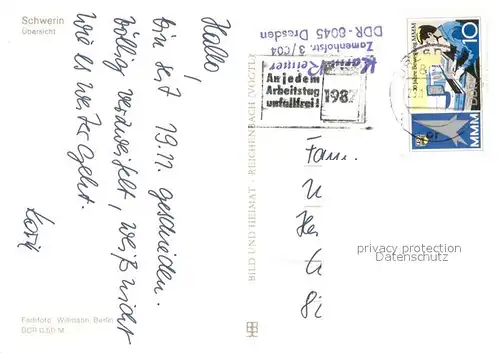 Schwerin
Übersicht
Hallo,
bin seit 19.11. geschieden.
Völlig verzweifelt, weiß nicht
wie es weitergeht.
Farbfoto: Wittmann, Berlin
DDR 0,50 M
BILD UND HEIMAT · REICHENBACH (VOGTL)
Reimer
Zamenhofstr. 3 /604
DDR - 8045 Dresden
An jedem
Arbeitstag
unfallfrei!
1987
30 Jahre Bewegung MMM
10
DDR
MMM
Fam.
privacy protection
Datenschutz